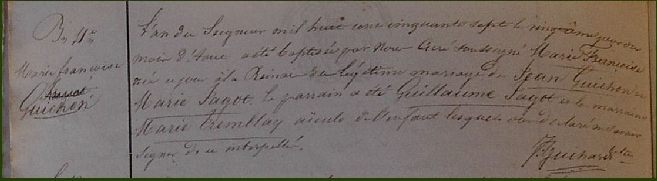 Bn 11me
Marie françoise
Guichen
L'an du Seigneur mil huit cent cinquante sept le vingtième jour du
mois d'Aout a été baptisée par Nous Curé soussigné Marie Francoise
née ce jour à la Réunion du légitime mariage de Jean Guichen et
Marie Jagot, le parrain a été Guillaume Jagot et la marraine
Marie Tremblay aïeule de l'enfant lesquels ont déclaré ne savoir
signer de ce interpellé.
J Guichard